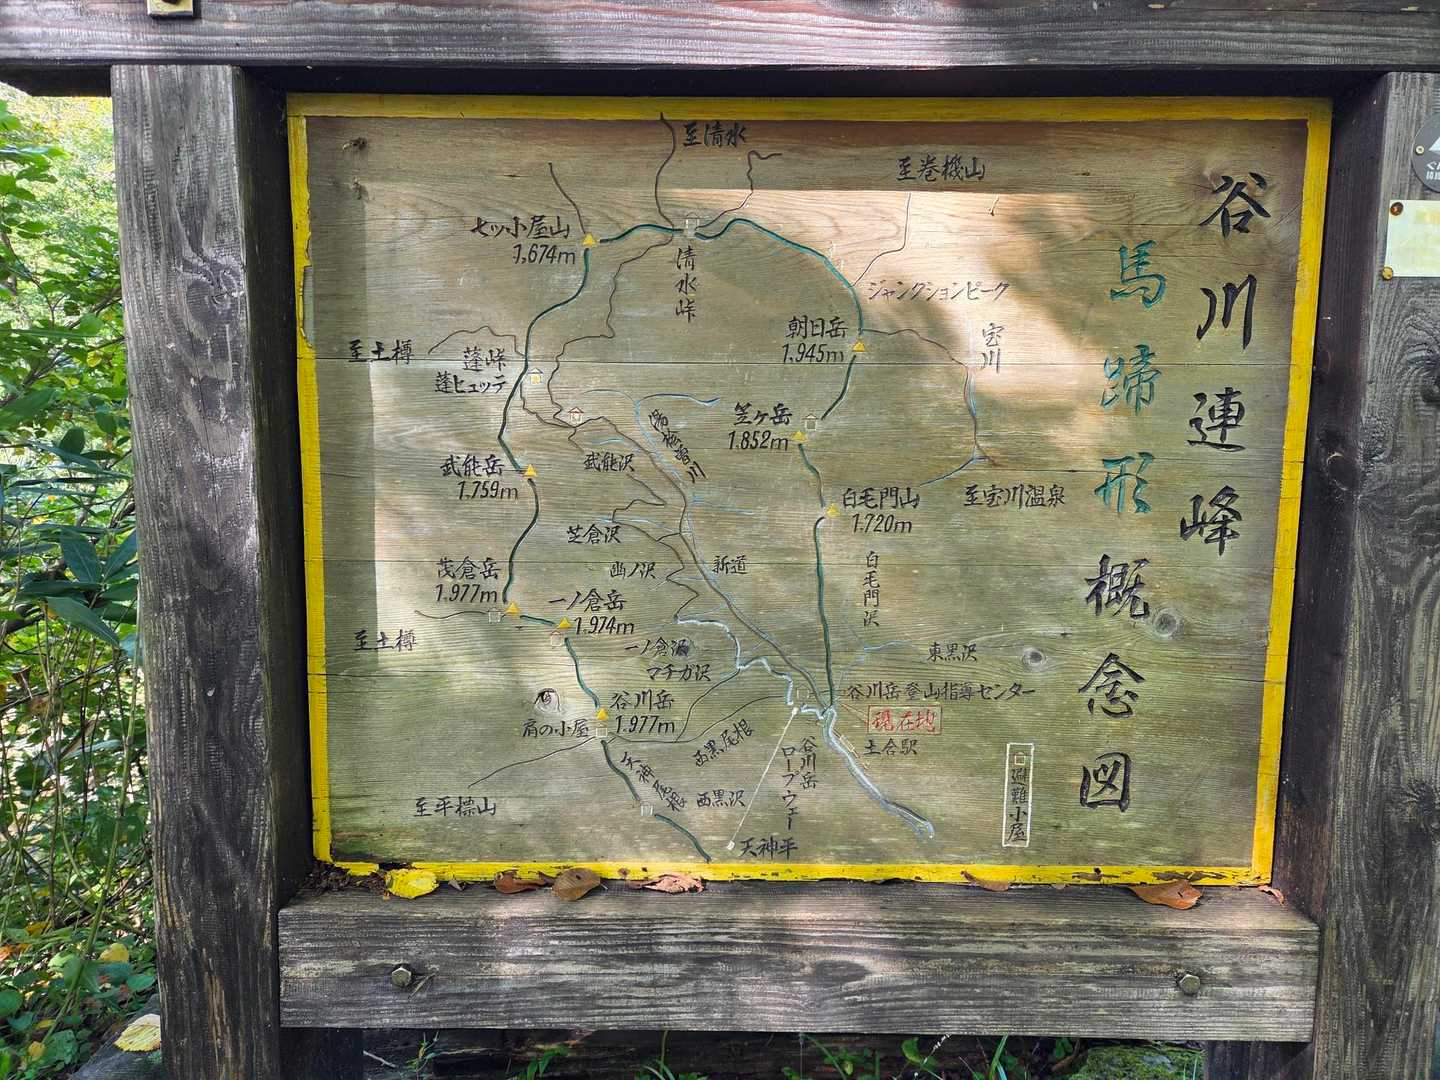 谷川連峰
馬蹄形概念図
至清水
至巻機山
七ッ小屋山
1,674m
清水峠
ジャンクションピーク
朝日岳
1,945m
宝川
至土樽
蓬峠
蓬ヒュッテ
笠ヶ岳
1.852m
湯桧曽川
武能岳
1,759m
武能沢
白毛門山
1.720m
至宝川温泉
芝倉沢
茂倉岳
1.977m
幽ノ沢
新道
白毛門沢
一ノ倉岳
1,974m
至土樽
一ノ倉沢
マチガ沢
東黒沢
谷川岳登山指導センター
現在地
土合駅
谷川岳
1.977m
肩の小屋
西黒尾根
天神尾根
西黒沢
谷川岳
ロープウェー
至平標山
天神平
避難小屋